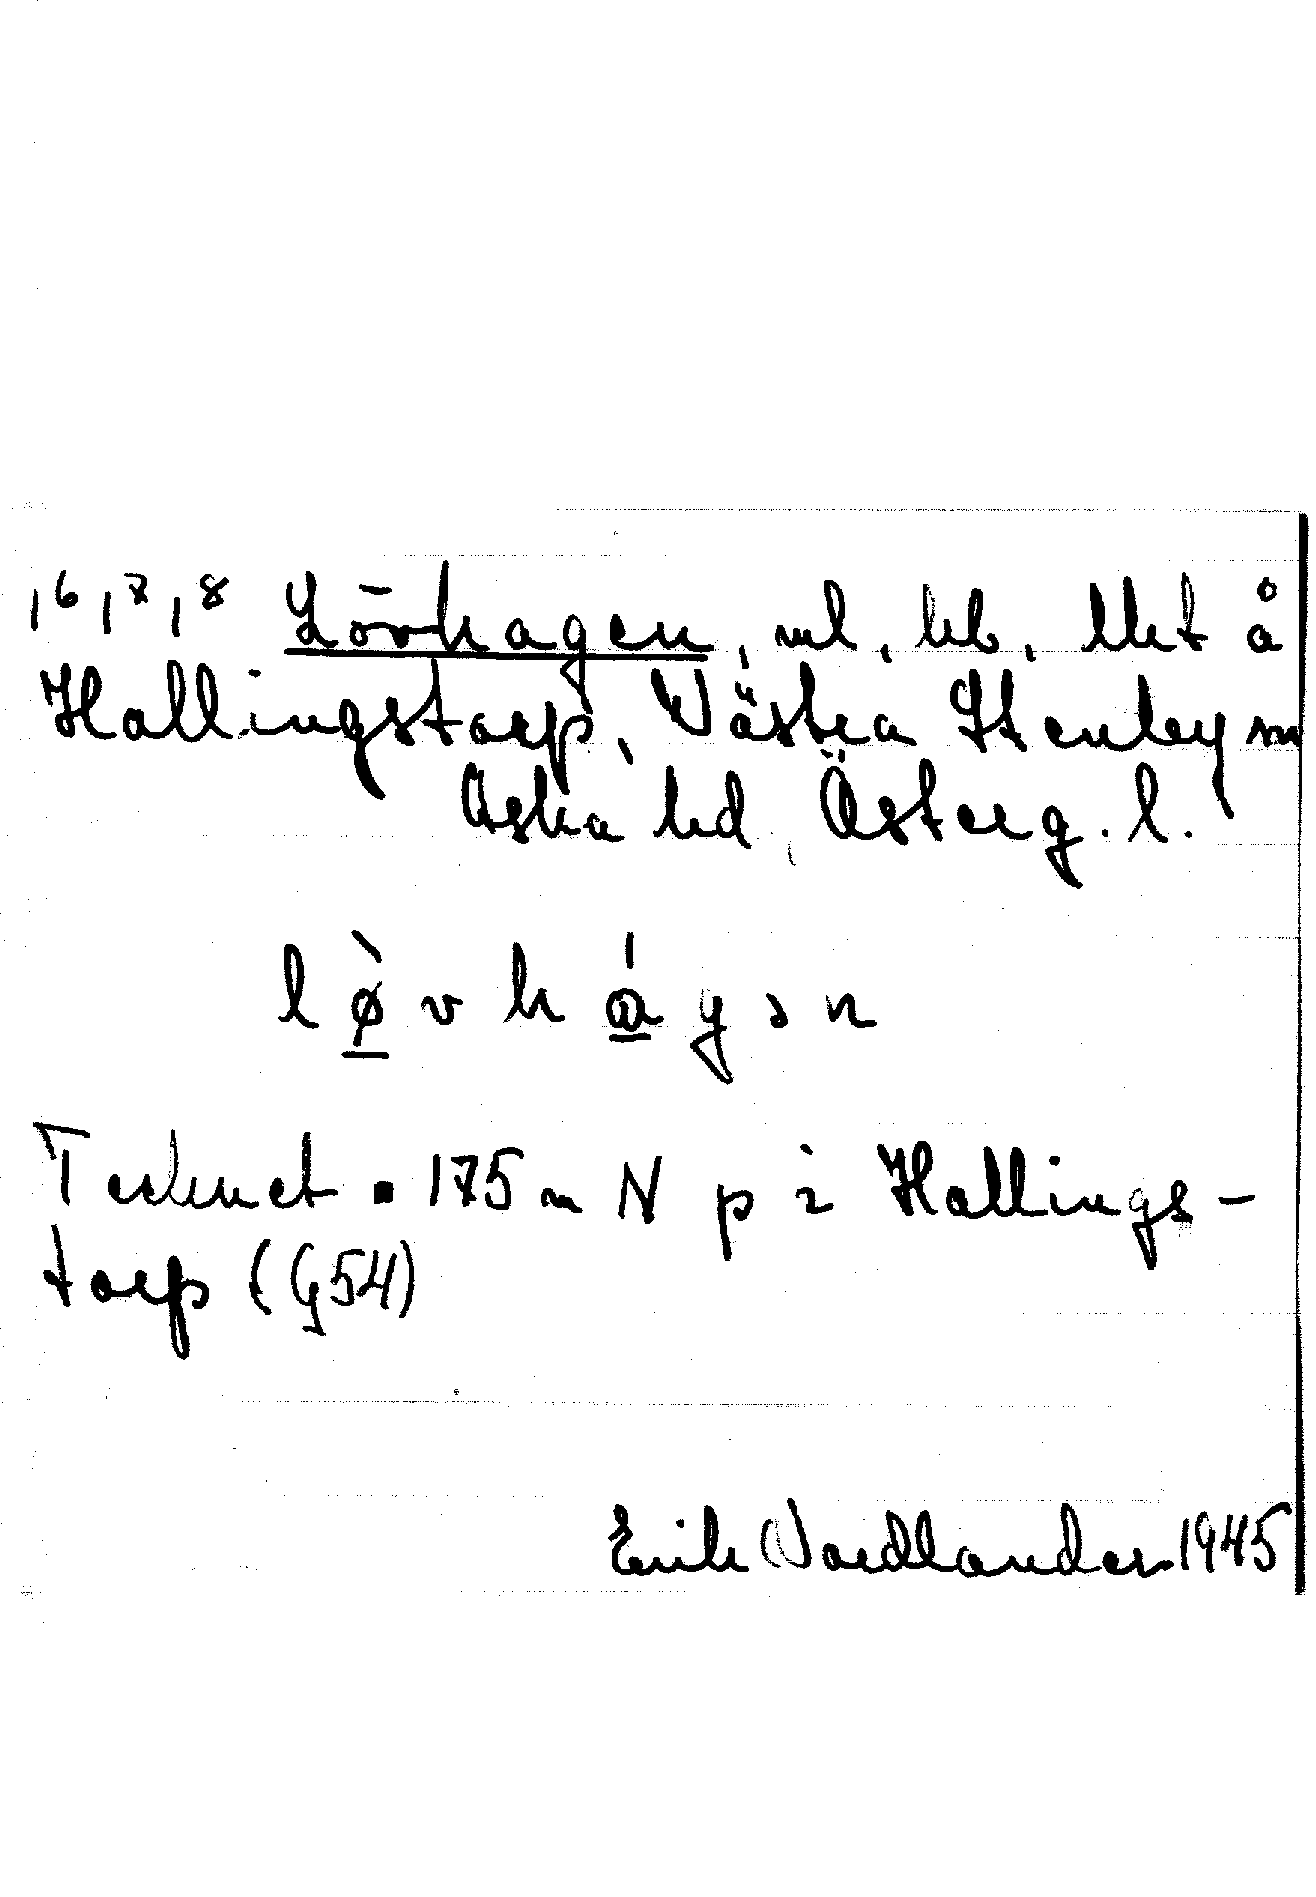 1⁶ 1⁷ 1⁸ Lövhagen, ml, hb, llet å
Hallingstorp, Västra Stenby sn
Aska hd, Österg. l.
lø̀vhágən
Tecknet ▪ 175 m N p i Hallings-
torp (G54)
Erik Nordlander 1945